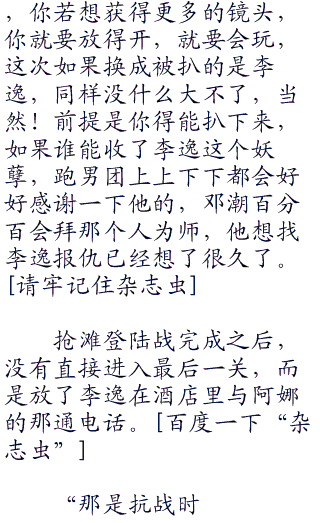 ，你若想获得更多的镜头，
你就要放得开，就要会玩，
这次如果换成被扒的是李
逸，同样没什么大不了，当
然！前提是你得能扒下来，
如果谁能收了李逸这个妖
孽，跑男团上上下下都会好
好感谢一下他的，邓潮百分
百会拜那个人为师，他想找
李逸报仇已经想了很久了。
[请牢记住杂志虫]
抢滩登陆战完成之后，
没有直接进入最后一关，而
是放了李逸在酒店里与阿娜
的那通电话。[百度一下“杂
志虫”]
“那是抗战时